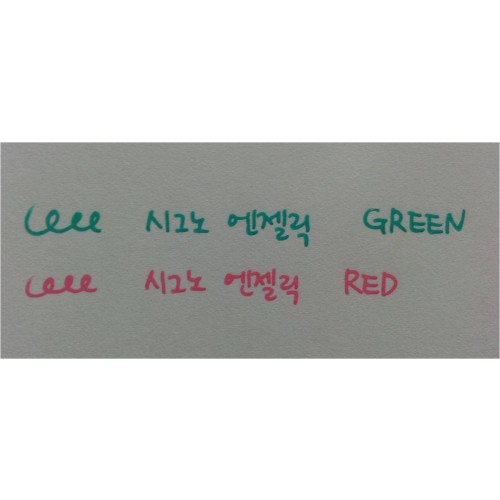 시그노 엔젤릭 GREEN
시그노 엔젤릭 RED